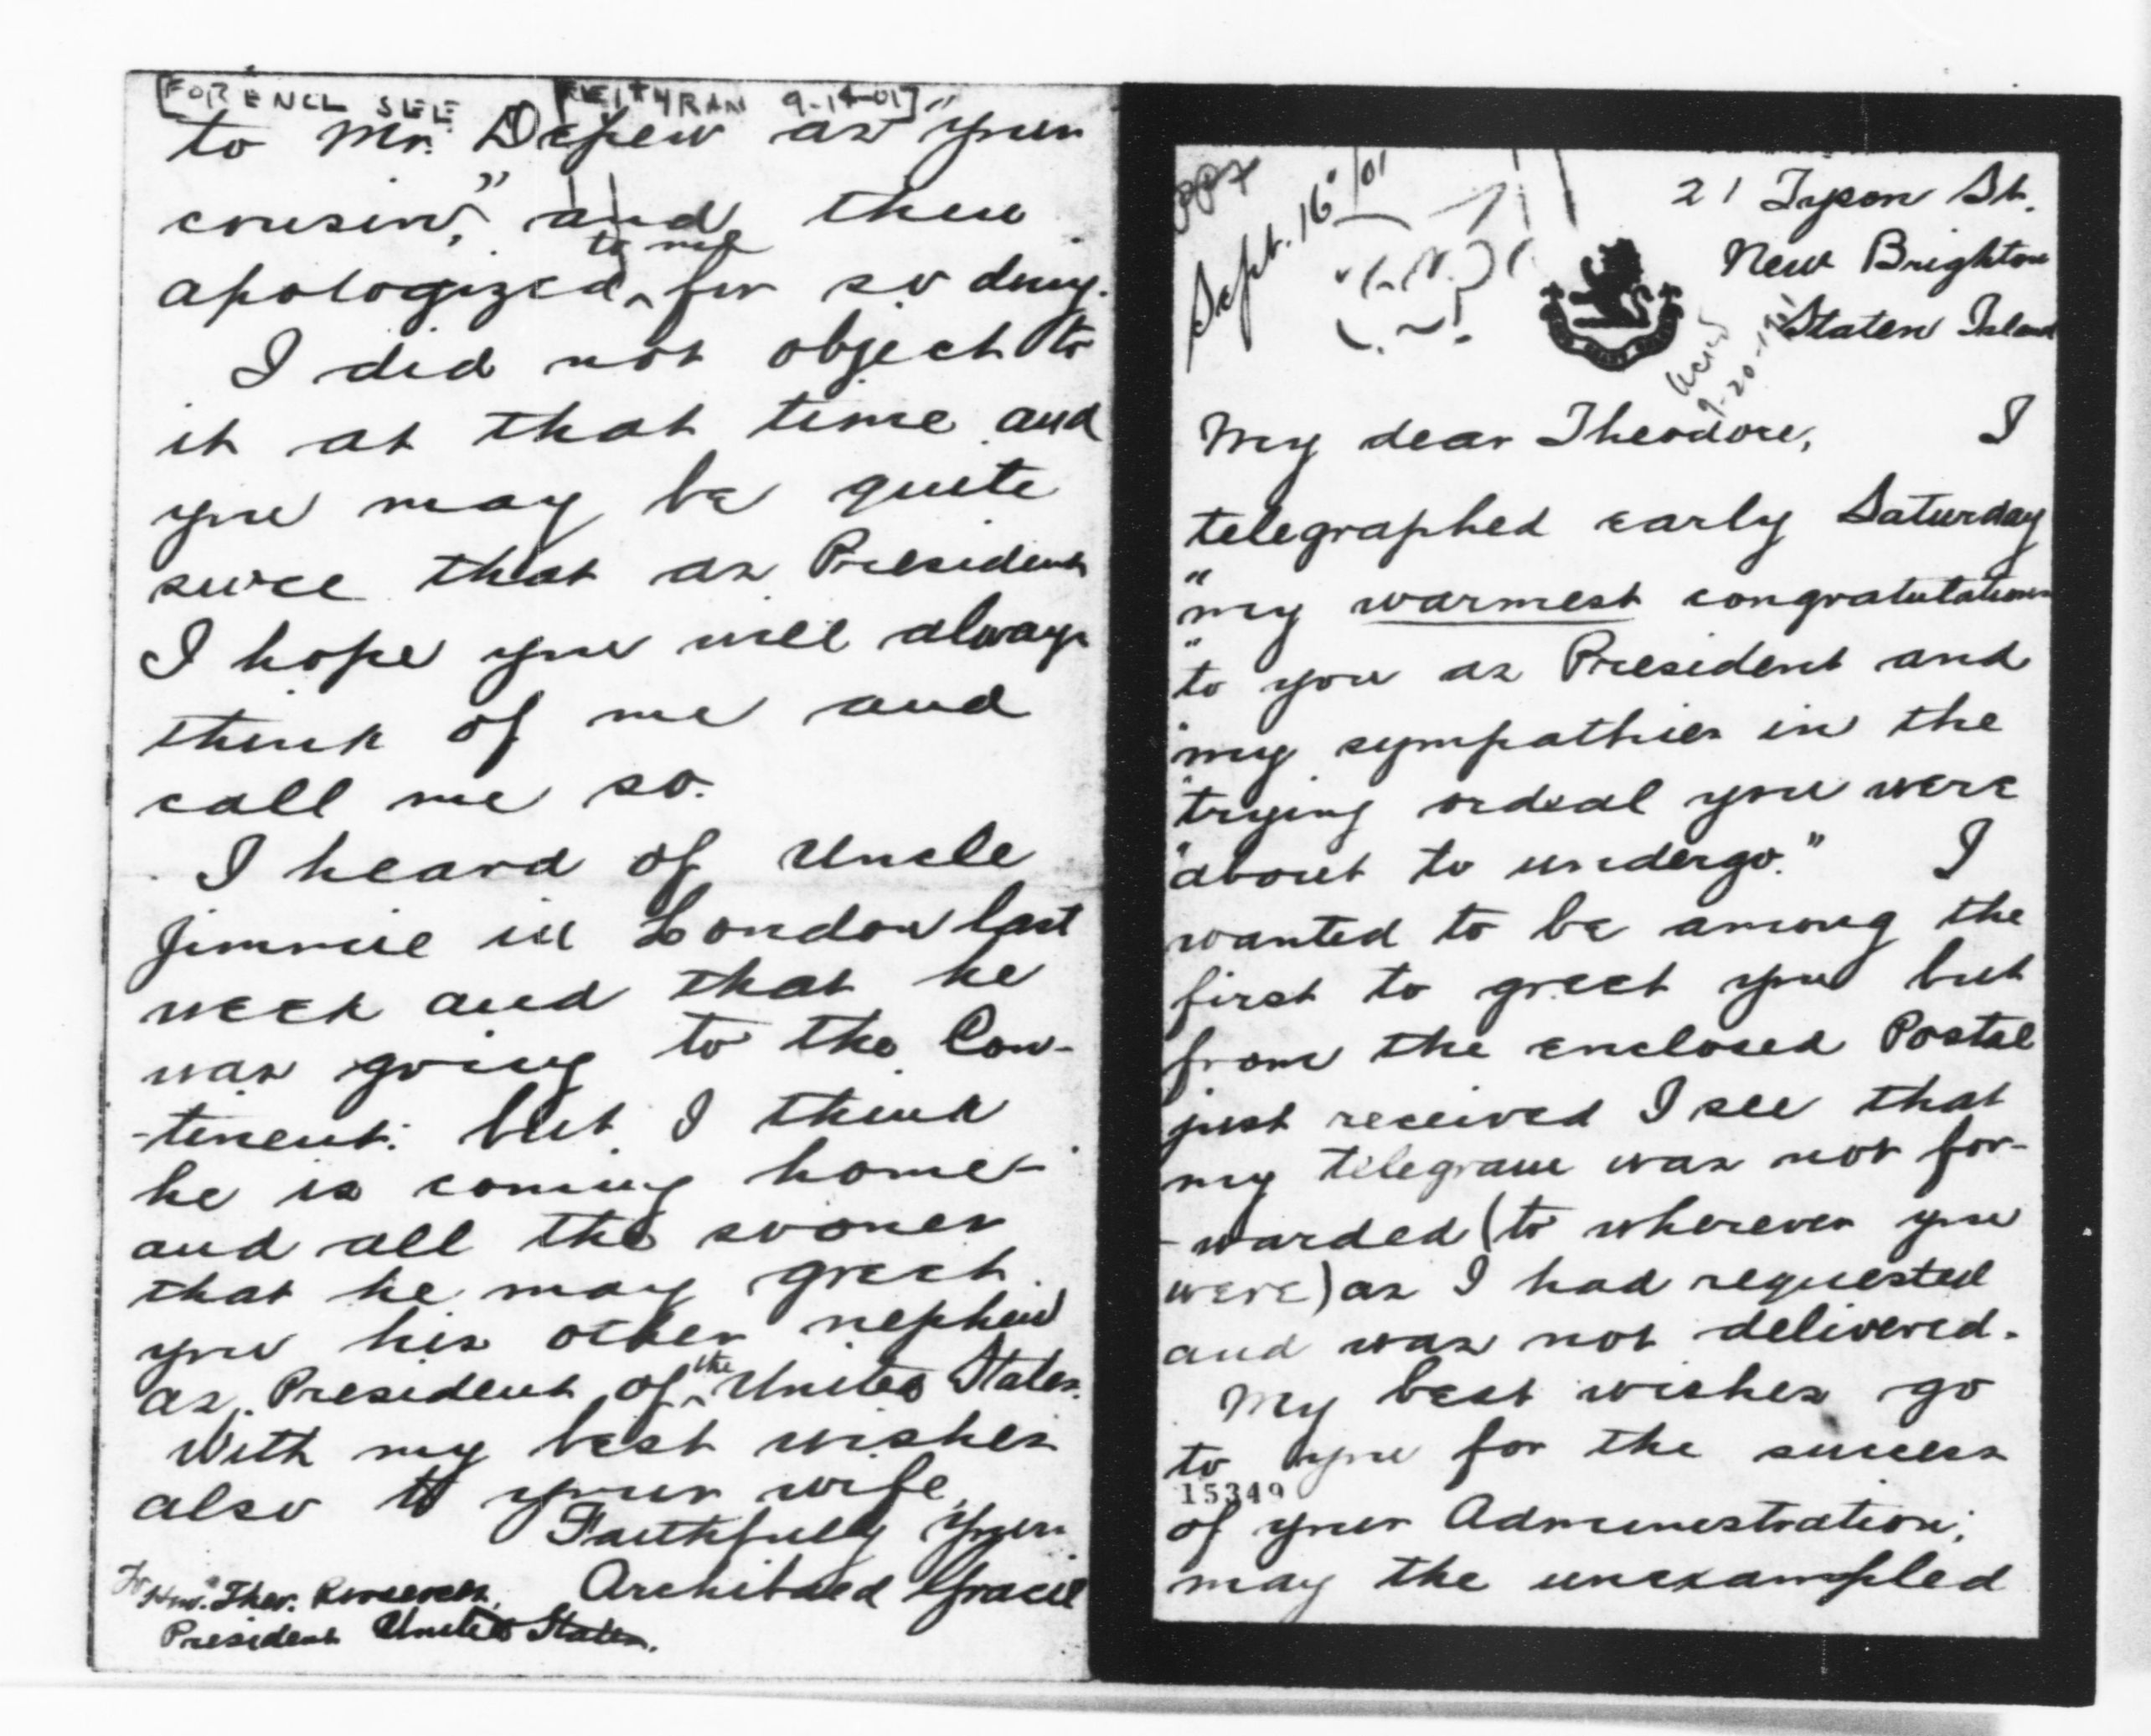 [FOR ENCL SEE REITHRAN 9-14-01]
to Mr. Depew as "your
cousin," and then
apologized to me for so doing.
I did not object to
it at that time and
you may be quite
suree that as President
I hope you will always
think of me and
call me so.
I heard of Uncle
Jimmie in London last
week and that he
was going to the Con-
-tinent: but I think
he is coming home-
and all the sooner
that he may greet
you his other nephew
as President of the United States.
With my best wishes
also to your wife,
Faithfully yours
Archibald Gracie
To Hon. Theo. Roosevelt,
President United States.
PPF
Sept. 16"/01
21 Tyson St.
New Brighton
Staten Island
Ackd
9-20-1901
My dear Theodore, I
telegraphed early Saturday
"my warmest congratulations
"to you as President and
"my sympathies in the
"trying ordeal you were
"about to undergo." I
wanted to be among the
first to greet you but
from the enclosed Postal
just received I see that
my telegram was not for-
-warded (to wherever you
were) as I had requested
and was not delivered.
My best wishes go
to you for the success
15349
of your Administration;
may the unexampled